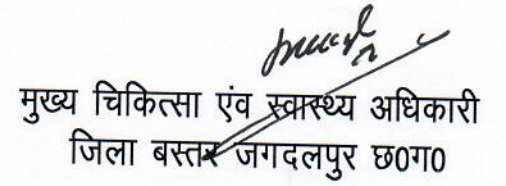 मुख्य चिकित्सा एंव स्वास्थ्य अधिकारी
जिला बस्तर जगदलपुर छ0ग0